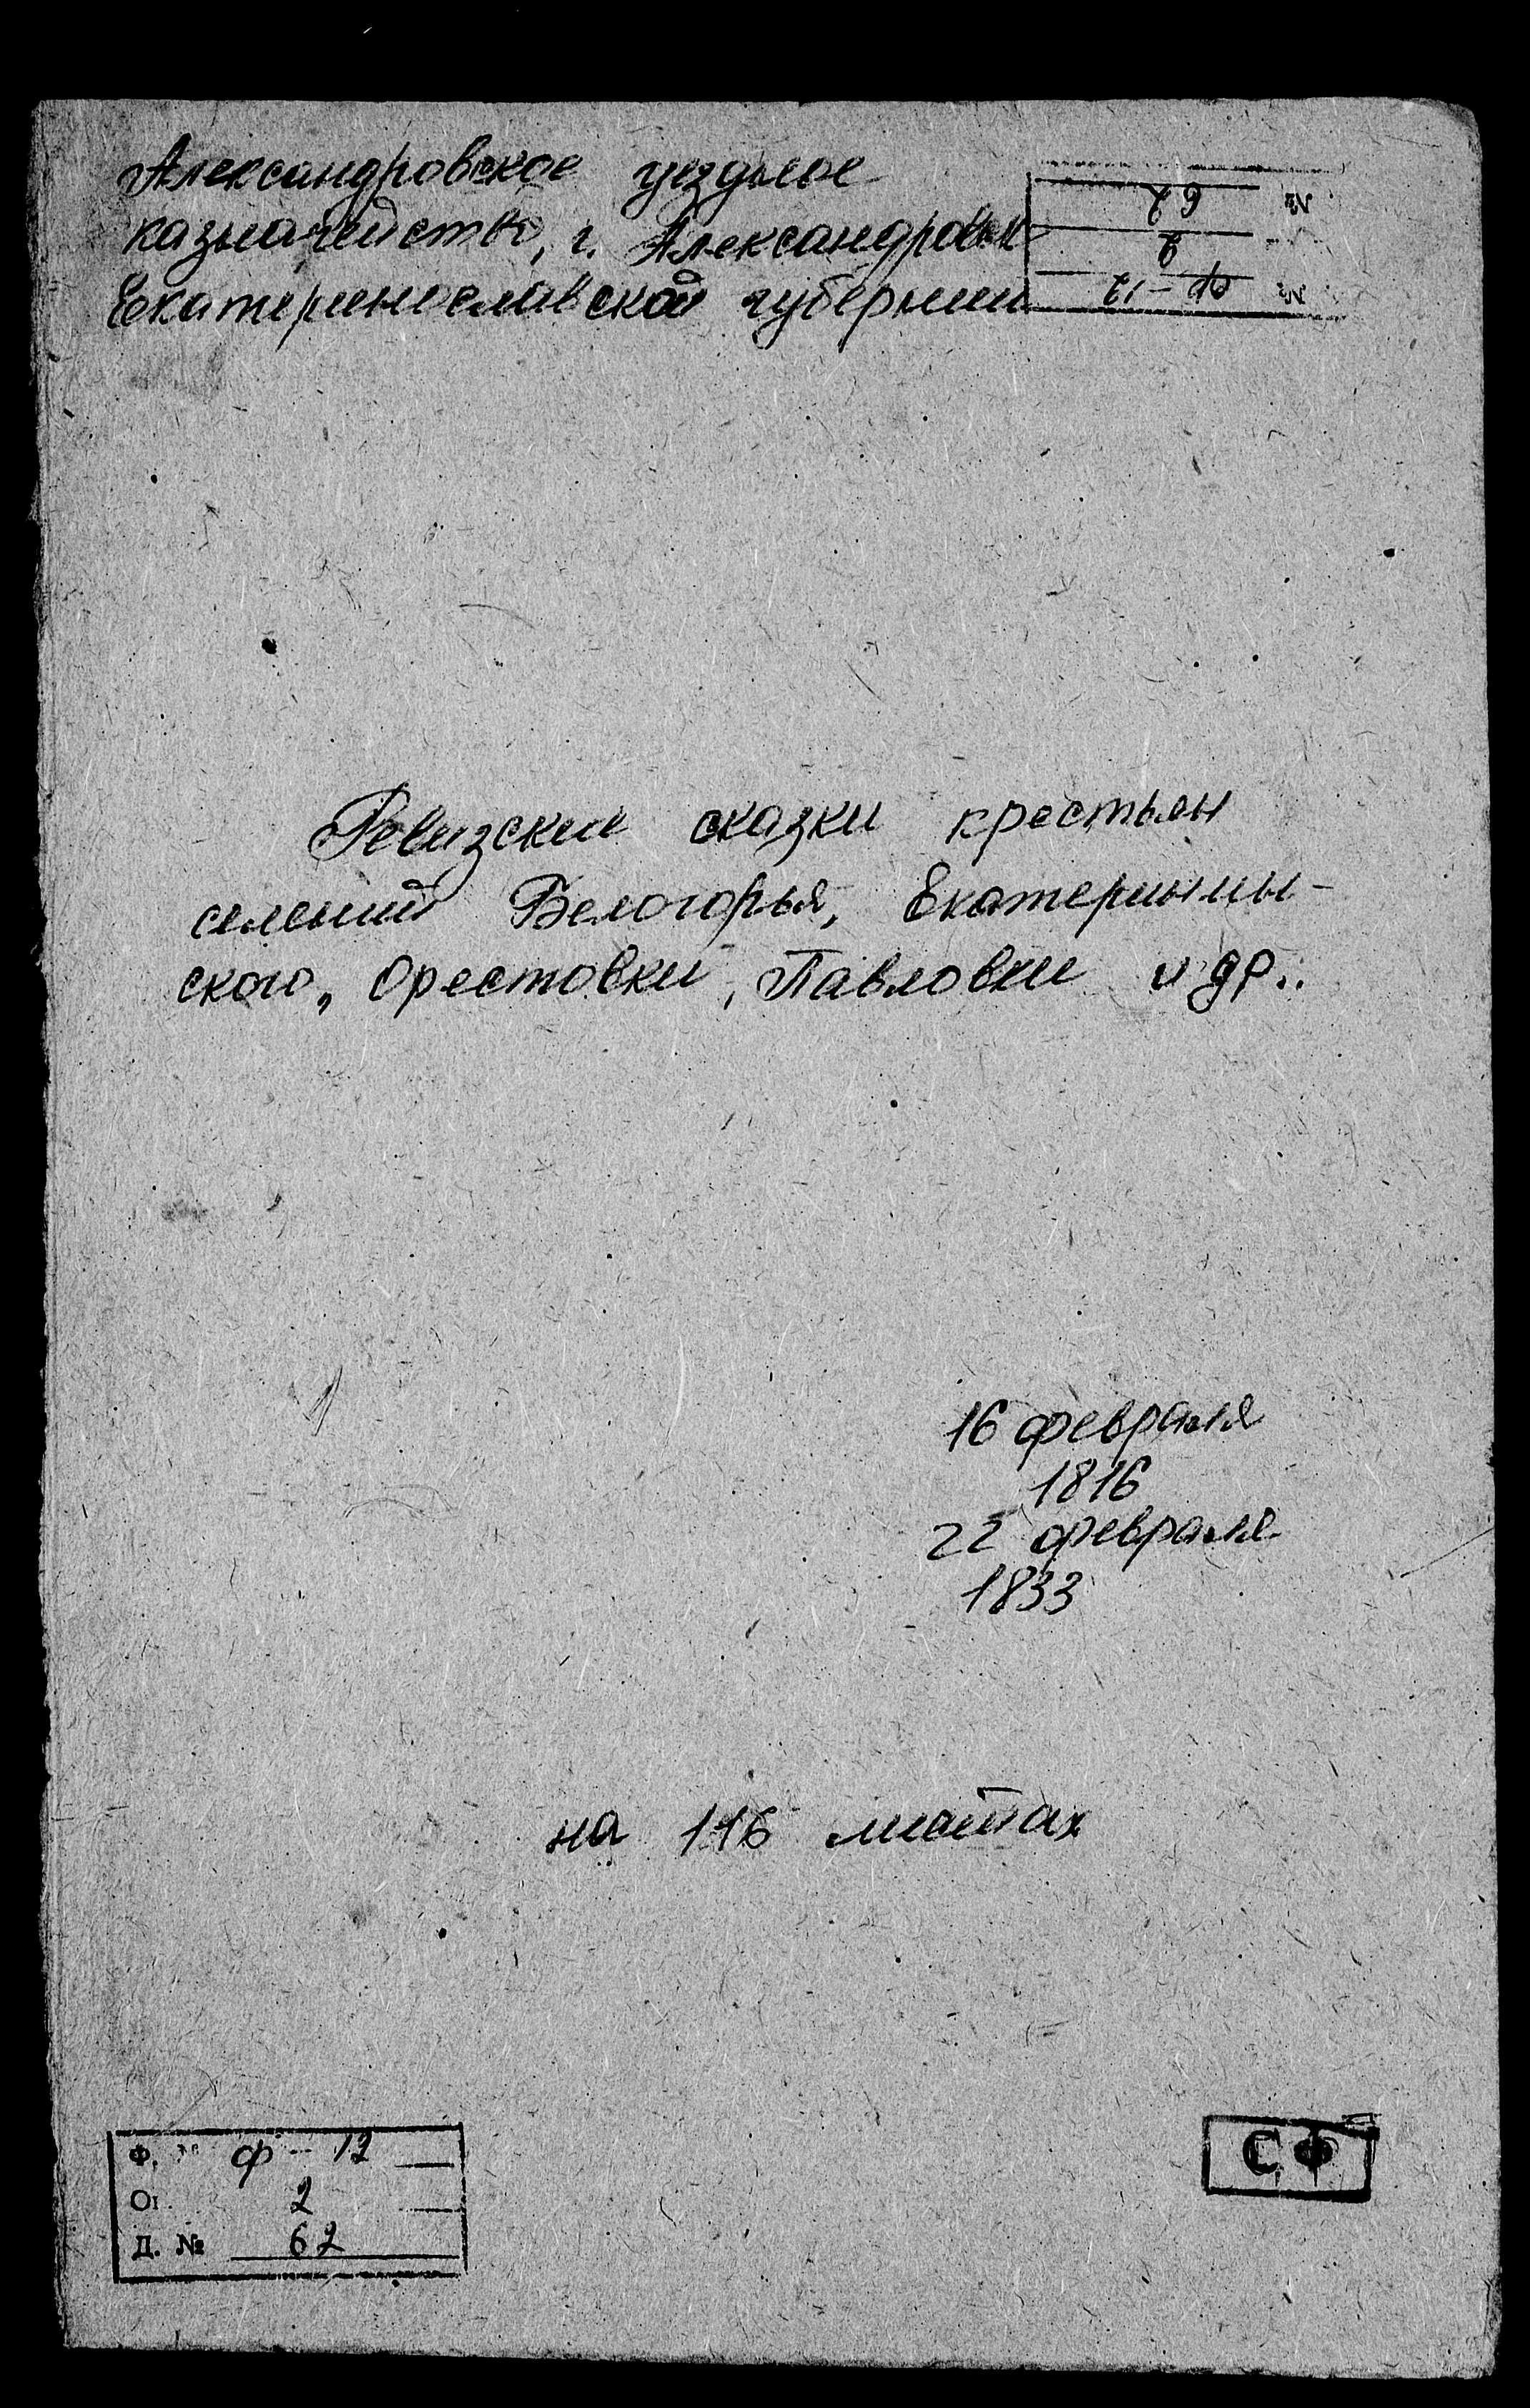 Александровское уездное
казначейство, г. Александровск
Екатеринославской губернии
№ 62
2
№ Ф-12
Ревизские сказки крестьян
селений Белогорья, Екатеринин-
ского, Орестовки, Павловки и др..
16 февраля
1816
22 февраля
1833
на 116 листах
Ф. № Ф-12
Оп. 2
Д. № 62
СФ